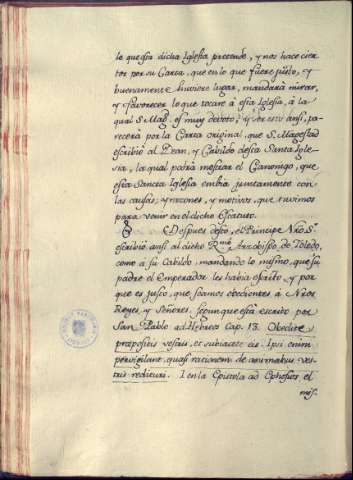 lo que esta dicha Iglesia pretende, y nos hace cier
tos por su Carta, que en lo que fuere justo, y
buenamente huviere lugar, mandará mirar,
y favorecer lo que tocare á esta Iglesia, á la
qual S. Mag. es muy devoto; y ser esto ansi, pa-
recerá por la Carta original, que S. Magestad
escribió al Dean, y Cabildo desta Santa Igle-
sia, la qual podrá mostrar el Canonigo, que
esta Sancta Iglesia embia juntamente con
las causas, y razones, y motivos, que tuvimos
para venir en el dicho Estatuto.
Despues desto, el Principe Nro. S.
escribió ansi al dicho Rmo. Arzobispo de Toledo,
como á su Cabildo, mandando lo mismo, que su
padre el Emperador les habia escrito, y por
que es justo, que seamos obedientes á Nros
Reyes, y Señores, segun que está escrito por
San Pablo ad Hebreos Cap. 13. Obedite
præpositis vestris, et subiacete eis. Ipsi enim
pervigilant, quasi rationem de animabus ves-
tris reddituri. I en la Epistola ad Ephesios el
mis.